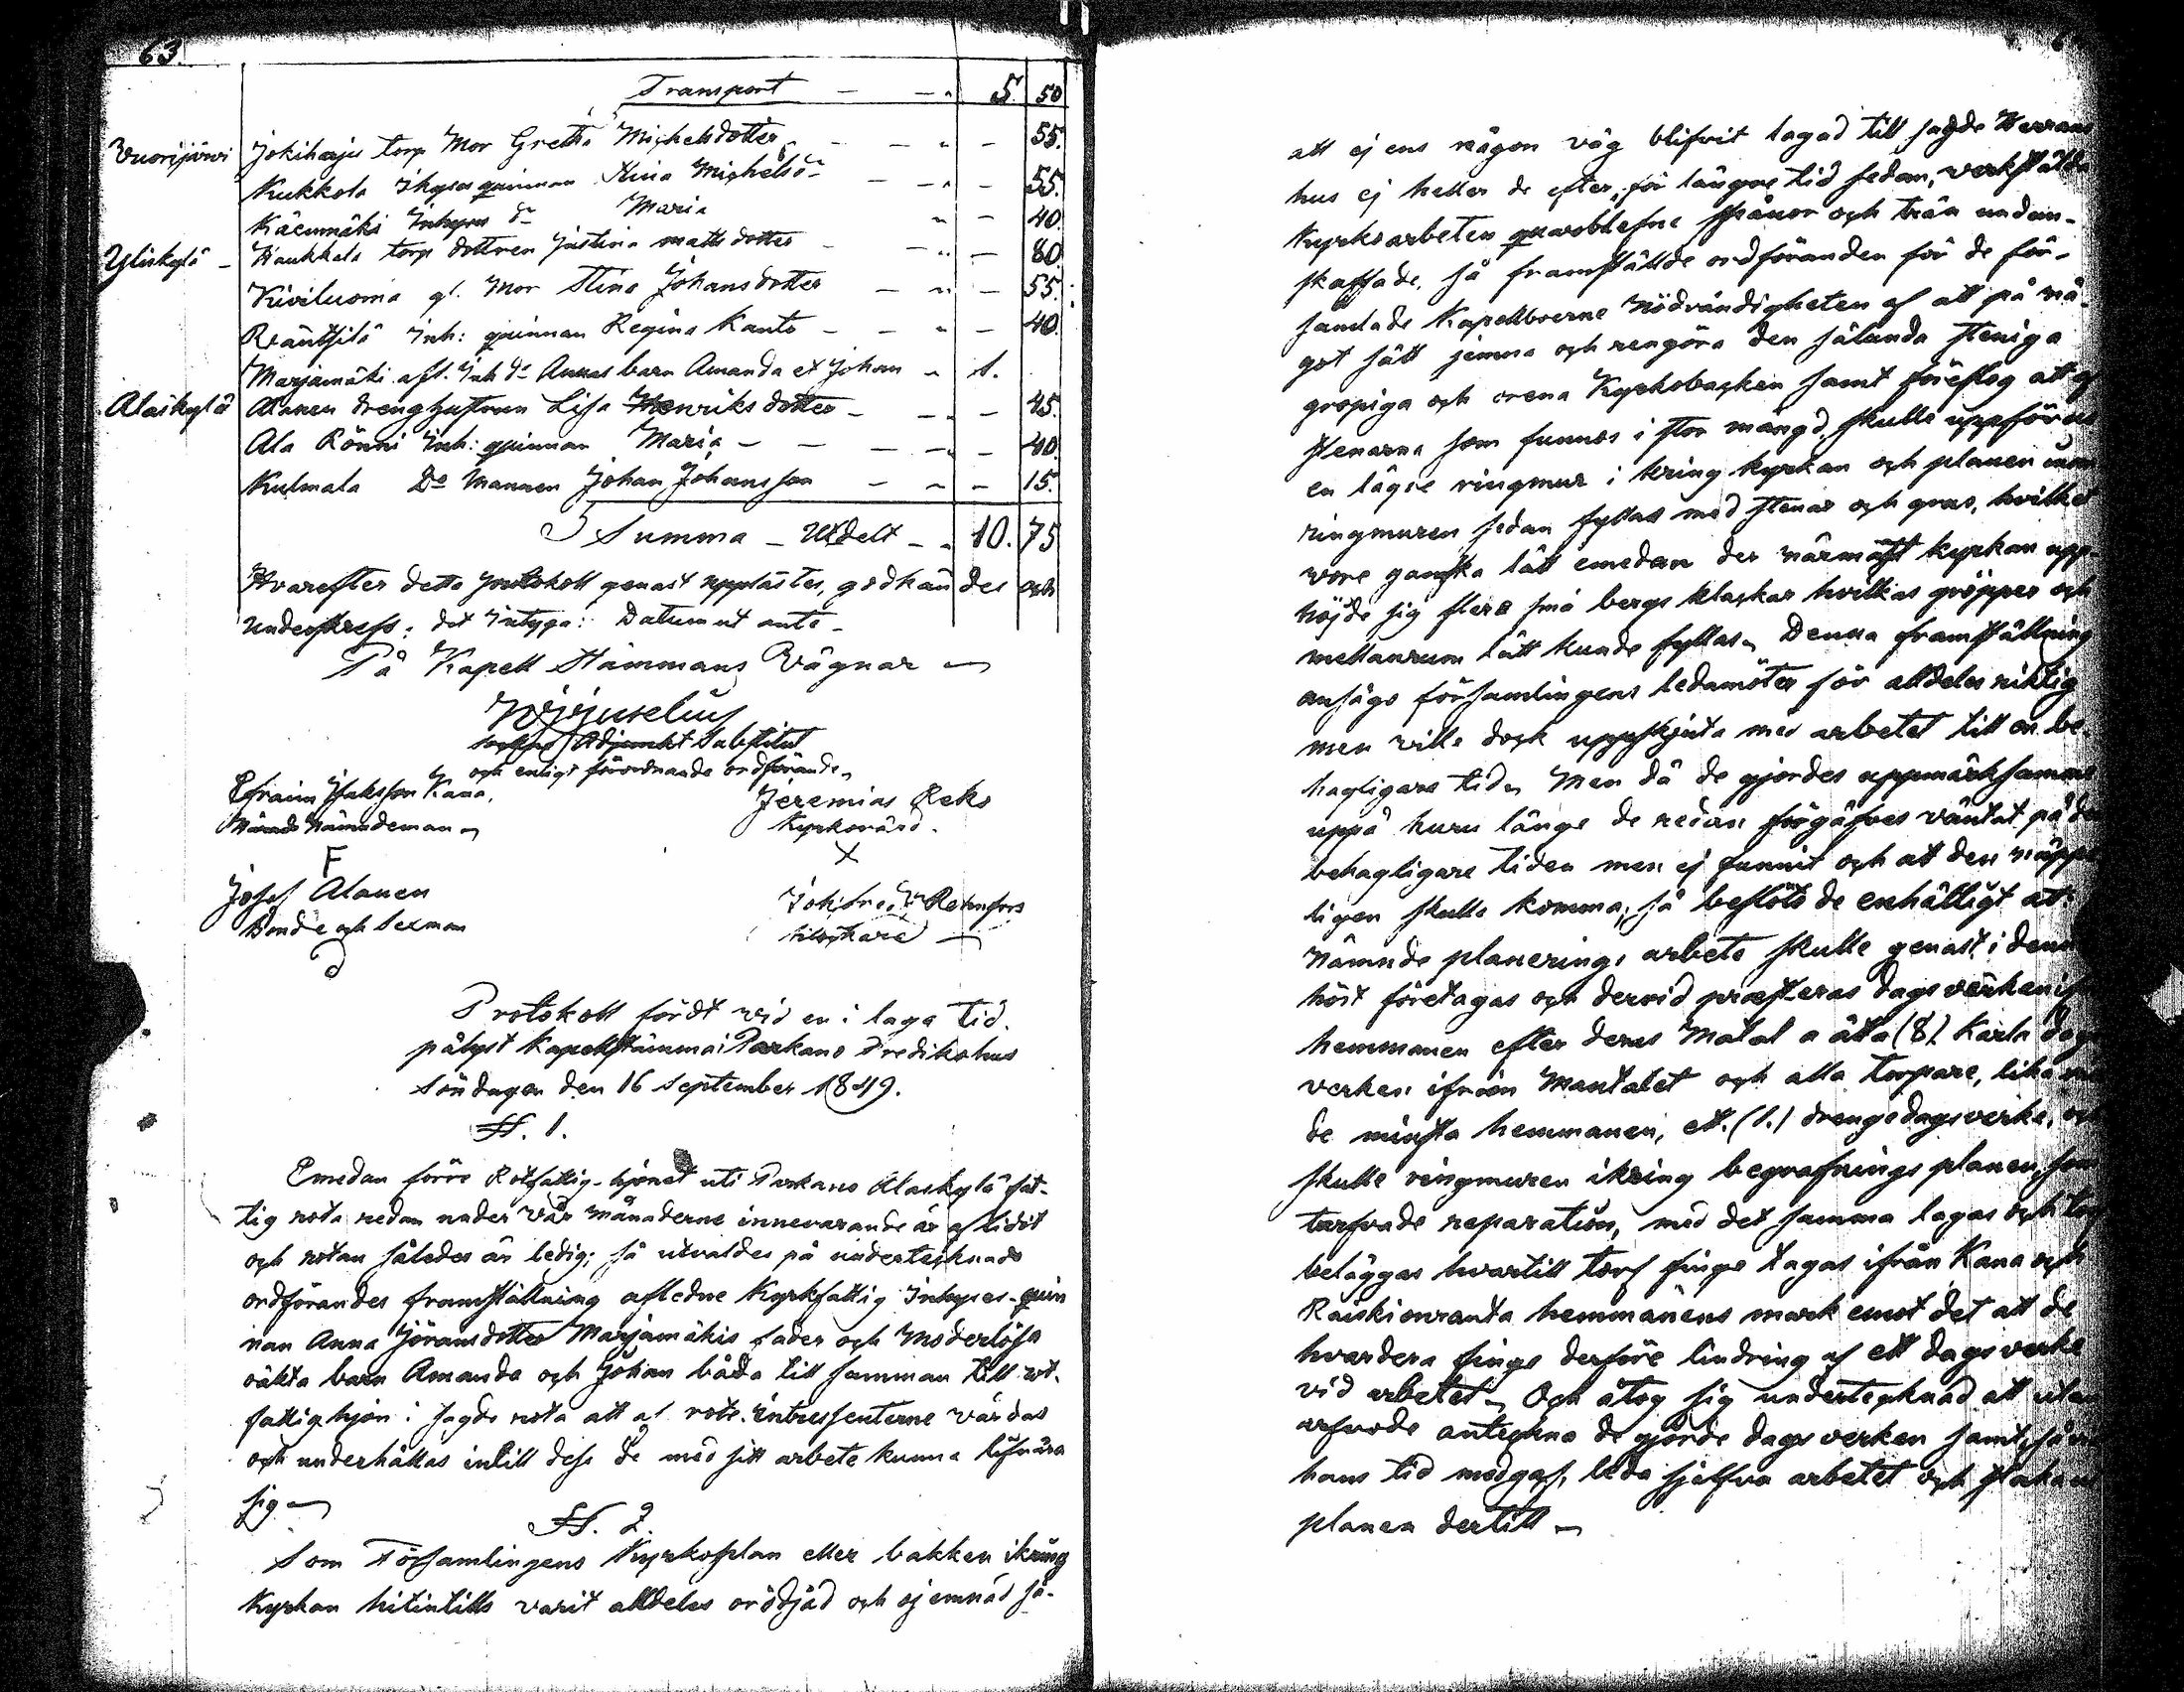 63.
Transport — — „ 5. 50
Vuorijärvi Jokiharju torp Mor Gretha Michelsdotter — — „ — 55.
Kukkola Ihyses quinnan Stina Michelsd:r — — „ — 55.
Käenmäki Inhyses d:o Maria „ — 40.
Yliskylä — Haukkala torp dottren Justina mattsdotter — — „ — 80
Kiviluoma gl. Mor Stina Johansdotter — „ — 55.
Rväntsilä Inh: quinnan Regina Kanto — — „ — 40.
Marjamäki afl. Inh d:o Annas barn Amanda et Johan — „ 1.
Alaskylä Alanen drenghustrun Lisa Henriksdotter — — „ — 45.
Ala Rönni Inh: quinnan Maria — — — „ — 40.
Kulmala D:o Mannen Johan Johansson — „ — 15.
Summa — Utdelt — „ 10. 75
Hvarefter detta protokoll genast upplästes, godkändes och
underskrefs; det intyga: Datum ut ante —
På Kapell Stämmans Vägnar —
Adjunkt Substitut
och enligt förordnande ordförande,
Efraim Isaksson Kana, Jeremias Reko
Nämndeman Kyrkovärd.
F X
Josef Alanen Rehnfors
Bonde och Sexman klockare —
Protokoll fördt vid en i laga tid
pålyst Kapellstämma i Parkano Predikohus
Söndagen den 16 September 1849.
§. 1.
Emedan förre Rotfattig-hjonet uti Parkano Alaskylä fat-
tig rota redan under vår månaderne innevarande år aflidit
och rotan således är ledig; så utvaldes på undertecknads
ordförandes framställning aflednе Kyrkfattig Inhyses-quin
nan Anna Jöransdotter Marjamäkis fader och Moderlösa
oäkta barn Amanda och Johan båda till samman till rot-
fattighjon i sagde rota att af rote-Intressenterne vårdas
och underhållas intill dess de med sitt arbete kunna lifnära
sig —
§. 2.
Som Församlingens Kyrkoplan eller bakken ikring
Kyrkan hitintills varit alldeles orödjad och ojemnad så-
att ej ens någon väg blifvit lagad till sagde Herrans
hus ej heller de efter, för längre tid sedan, verkstälda
Kyrkoarbeten quarblefne spånor och trän undan-
skaffade, så framställde ordföranden för de för-
samlade Kapellboerne Nödvändigheten af att på nå-
got sätt jemna och rengöra den sålunda steniga
gropiga och orena Kyrkobacken samt föreslog att af
stenarna som funnos i stor mängd, skulle uppföras
en lägre ringmur i kring kyrkan och planen inom
ringmuren sedan fyllas med stenar och grus, hvilket
vore ganska lätt emedan der närmast kyrkan upp-
höjde sig flera små bergs klackar hvilkas gröpper och
mellanrum lätt kunde fyllas — Denna framställning
ansågo församlingens ledamöter för alldeles riktig
men ville dock uppskjuta med arbetet till en be-
hagligare tid, Men då de gjordes uppmärksamme
uppå huru länge de redan förgäfves väntat på den
behagligare tiden men ej funnit och att den näppe-
ligen skulle komma, så beslöto de enhälligt att
nämnde planerings arbete skulle genast i denna
höst företagas och dervid præsteras dagsverken ifrån
hemmanen efter deras Matal a åtta (8) Karla dags
verken ifrån Mantalet och alla torpare, lika med
de minsta hemmanen, ett (1.) drengedagsverke, och
skulle ringmuren ikring begrafnings planen, som
tarfvade reparation, med det samma lagas och torf
beläggas hvartill torf finge tagas ifrån Kana och
Raiskionranta hemmanens mark emot det att de
hvardera finge derföre lindring af ett dagsverke
vid arbetet — Och åtog sig undertecknad att utan
arfvode anteckna de gjorde dagsverken samt, så vidt
hans tid medgaf, leda sjelfva arbetet och staka ut
planen dertill —